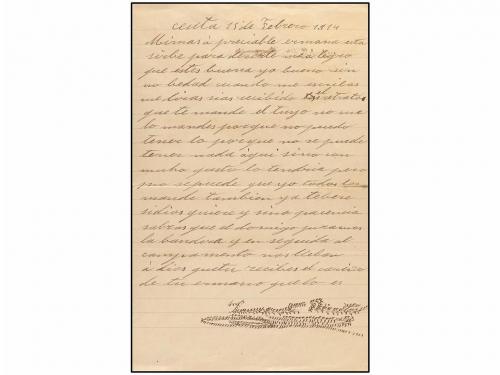 ceuta 15 de Febrero 1914
Mi mas á presiable ermana esta
sirbe para desirte
que estes buena yo bueno sin
no bedad cuando me escribas
me diras sias recibido retrato
que te mande el tuyo no me
lo mandes porque no puedo
tener lo porque no se puede
tener nada aqui sino con
mucho gusto lo tendria pero
no se puede que yo todos los
mande tambien ya tebere
sidios quiere y sino pacencia
sabras que el domigo juramos
la bandera y en seguida al
campamento nos lleban
á dios recibes el cariño
de tu ermano que lo es